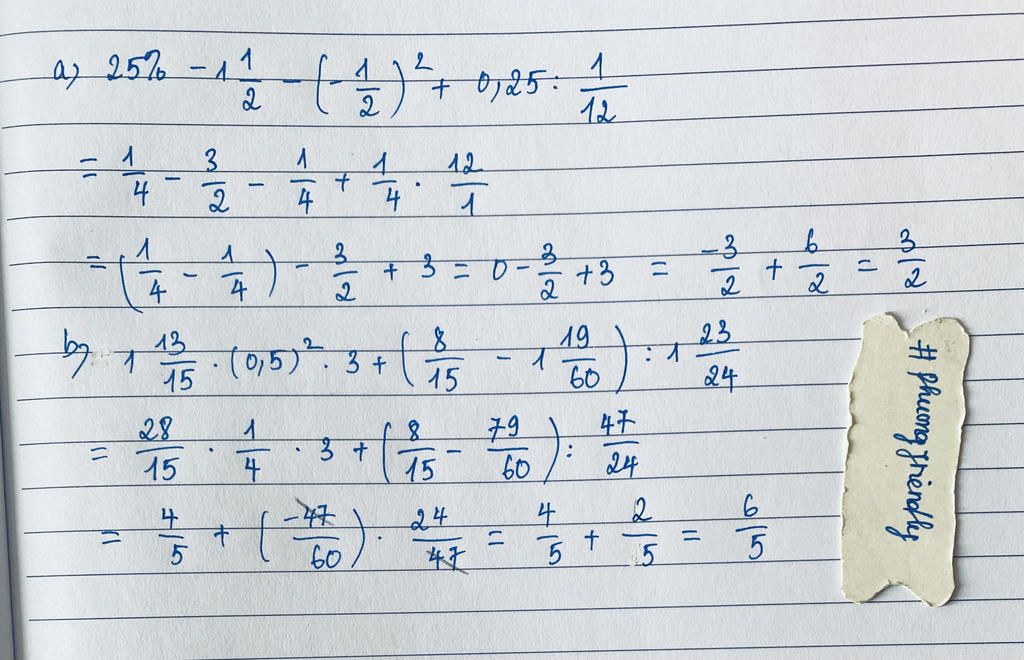 a) 25% - 1 1/2 - (-1/2)² + 0,25 : 1/12
= 1/4 - 3/2 - 1/4 + 1/4 . 12/1
= (1/4 - 1/4) - 3/2 + 3 = 0 - 3/2 + 3 = -3/2 + 6/2 = 3/2
b) 1 13/15 . (0,5)² . 3 + (8/15 - 1 19/60) : 1 23/24
= 28/15 . 1/4 . 3 + (8/15 - 79/60) : 47/24
= 4/5 + (-47/60) . 24/47 = 4/5 + 2/5 = 6/5
# phuongfriendly